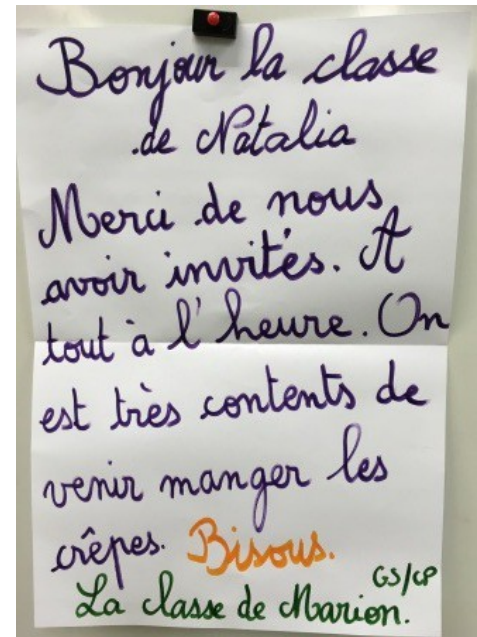 Bonjour la classe
de Natalia
Merci de nous
avoir invités. A
tout à l'heure. On
est très contents de
venir manger les
crêpes. Bisous.
GS/CP
La classe de Marion.